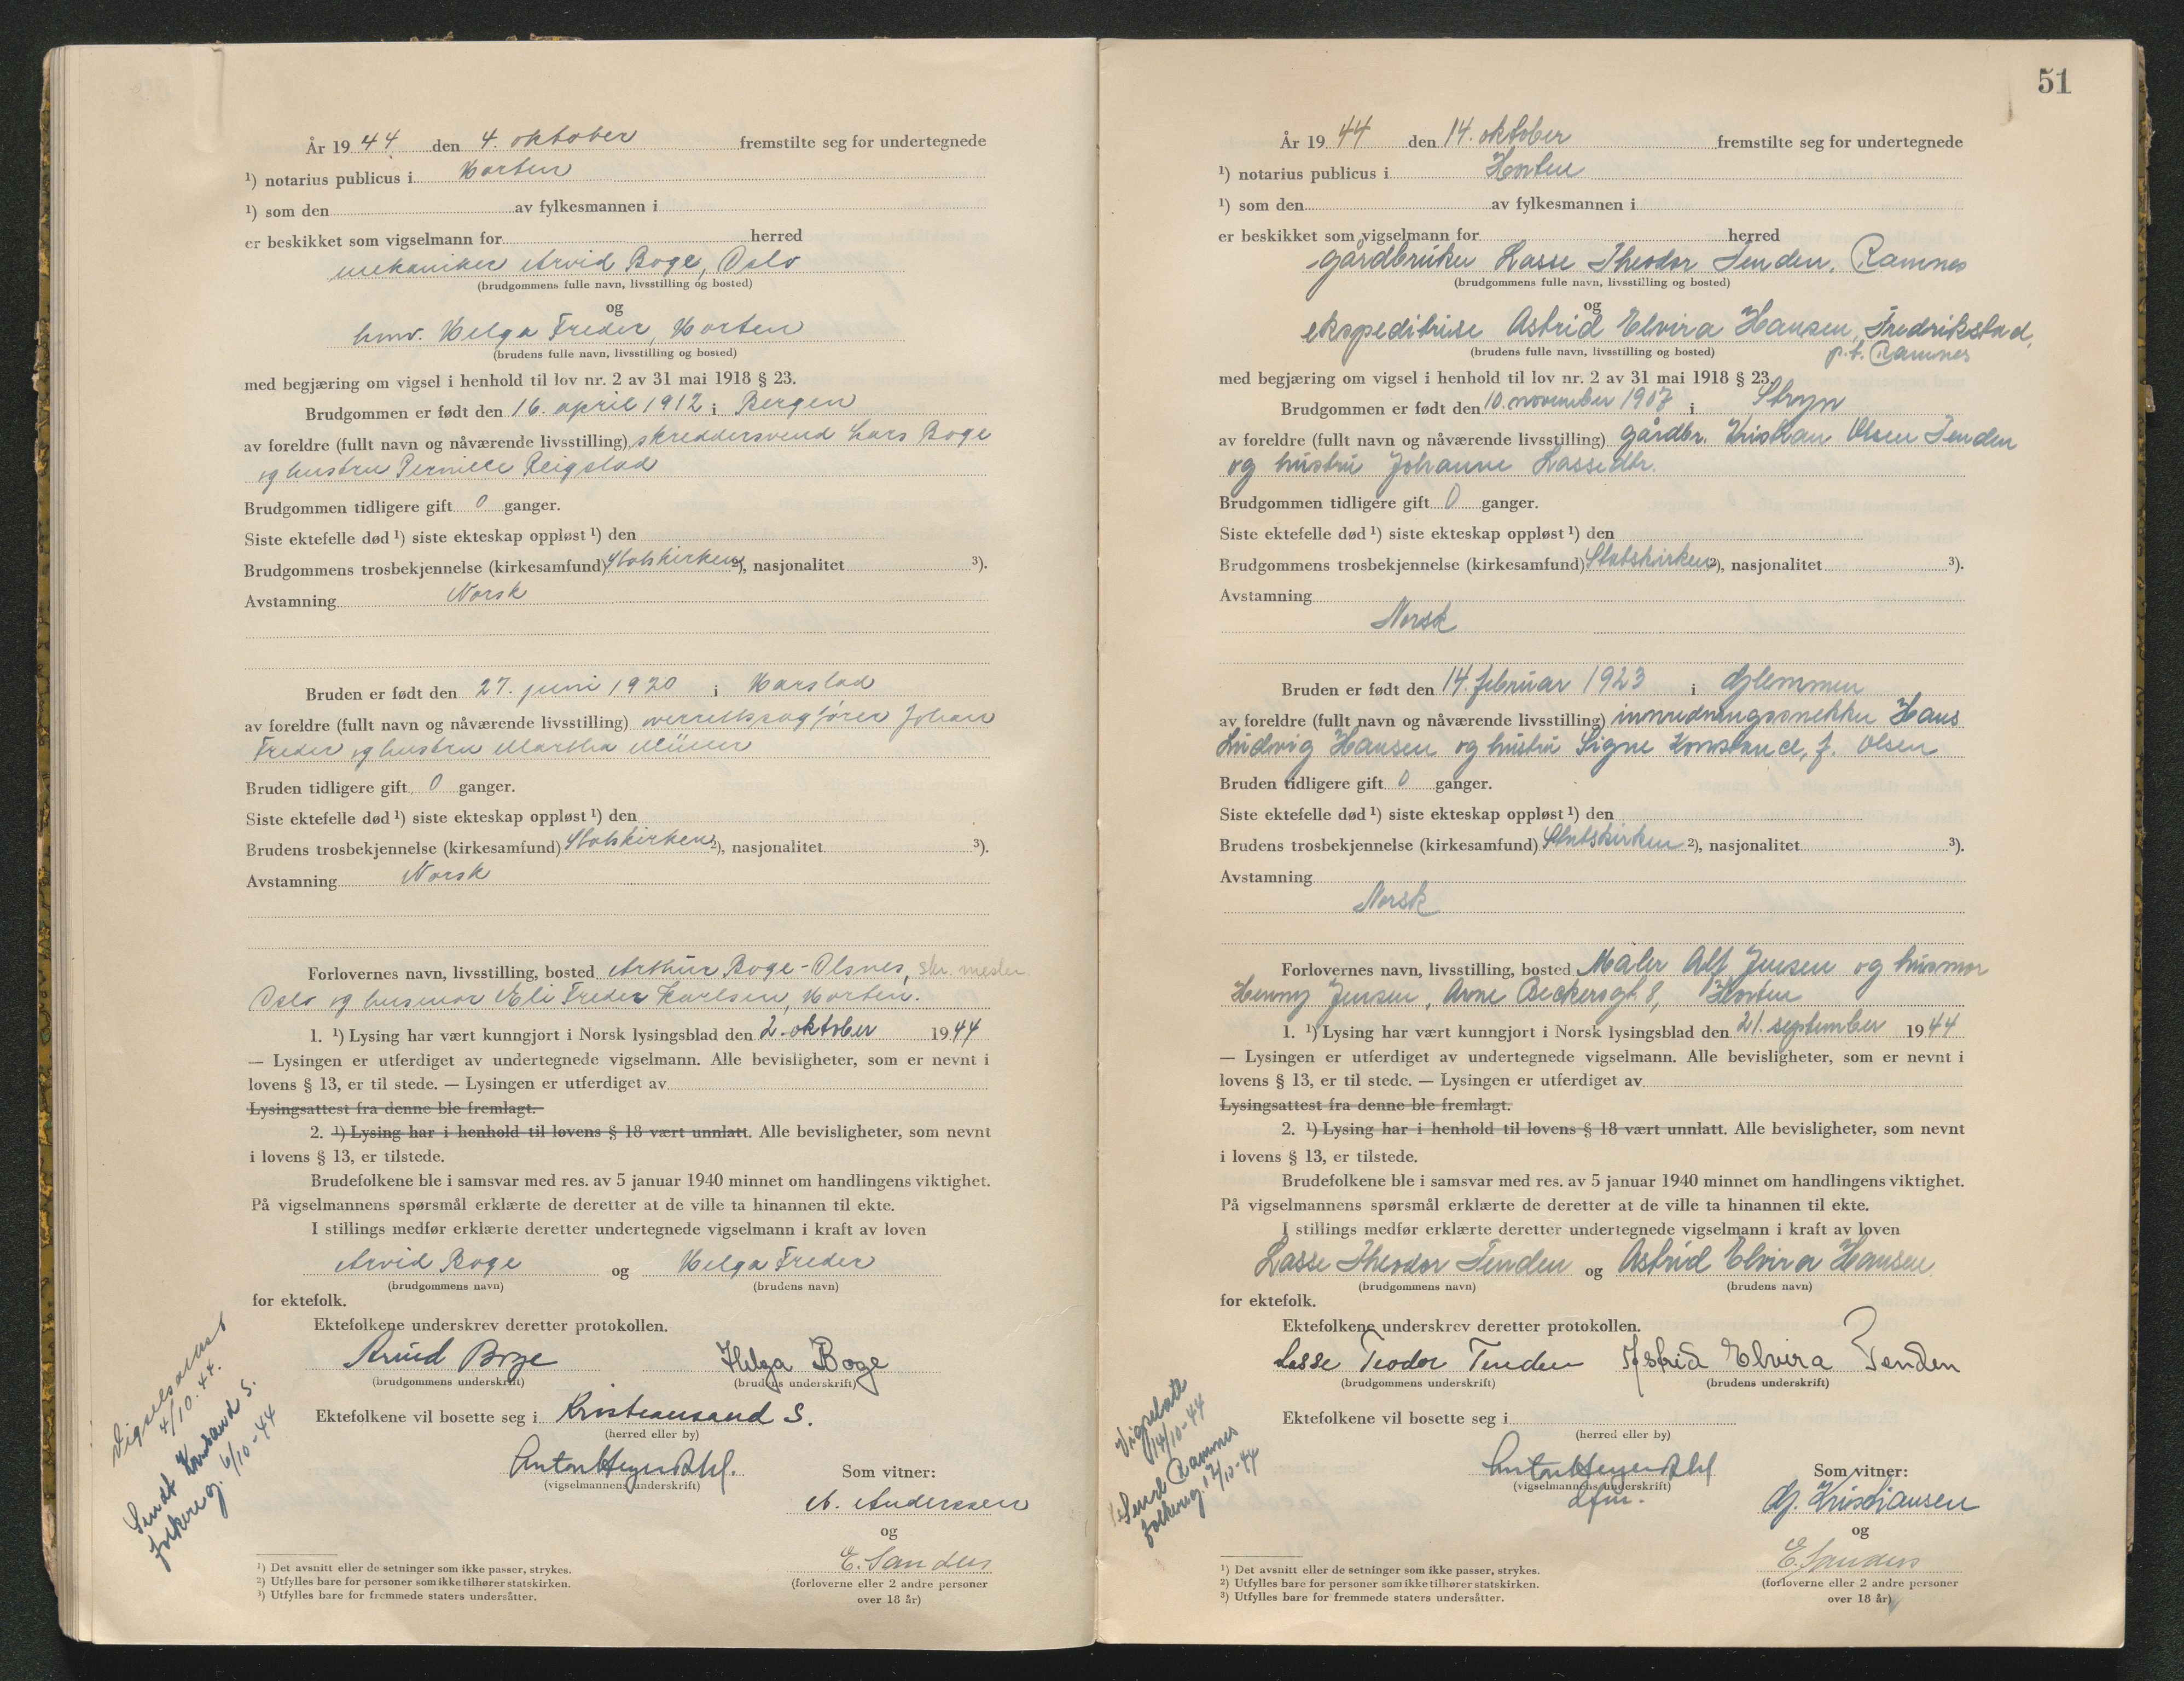 År 1944 den 4. oktober fremstilte seg for undertegnede
¹) notarius publicus i Horten
¹) som den av fylkesmannen i
er beskikket som vigselmann for herred
mekaniker Arvid Boge, Oslo
(brudgommens fulle navn, livsstilling og bosted)
og
hmv. Helga Freder, Horten
(brudens fulle navn, livsstilling og bosted)
med begjæring om vigsel i henhold til lov nr. 2 av 31 mai 1918 § 23.
Brudgommen er født den 16. april 1912 i Bergen
av foreldre (fullt navn og nåværende livsstilling) skreddersvend Lars Boge
og hustru Pernille Reigstad
Brudgommen tidligere gift 0 ganger.
Siste ektefelle død ¹) siste ekteskap oppløst ¹) den
Brudgommens trosbekjennelse (kirkesamfund) Statskirken ²), nasjonalitet ³).
Avstamning Norsk
Bruden er født den 27. juni 1920 i Harstad
av foreldre (fullt navn og nåværende livsstilling) overrettssagfører Johan
Freder og hustru Martha Müller
Bruden tidligere gift 0 ganger.
Siste ektefelle død ¹) siste ekteskap oppløst ¹) den
Brudens trosbekjennelse (kirkesamfund) Statskirken ²), nasjonalitet ³).
Avstamning Norsk
Forlovernes navn, livsstilling, bosted Arthur Boge-Olsnes, skr. mester
Oslo og husmor Eli Freder Karlsen, Horten.
1. ¹) Lysing har vært kunngjort i Norsk lysingsblad den 2. oktober 1944
— Lysingen er utferdiget av undertegnede vigselmann. Alle bevisligheter, som er nevnt i
lovens § 13, er til stede. — Lysingen er utferdiget av
Lysingsattest fra denne ble fremlagt.
2. ¹) Lysing har i henhold til lovens § 18 vært unnlatt. Alle bevisligheter, som nevnt
i lovens § 13, er tilstede.
Brudefolkene ble i samsvar med res. av 5 januar 1940 minnet om handlingens viktighet.
På vigselmannens spørsmål erklærte de deretter at de ville ta hinannen til ekte.
I stillings medfør erklærte deretter undertegnede vigselmann i kraft av loven
Arvid Boge og Helga Freder
(brudgommens navn) (brudens navn)
for ektefolk.
Ektefolkene underskrev deretter protokollen.
Arvid Boge Helga Boge
(brudgommens underskrift) (brudens underskrift)
Ektefolkene vil bosette seg i Kristiansand S.
(herred eller by)
Anton Heyerdahl.
(vigselmannens underskrift)
Som vitner:
A. Anderssen
og
E. Sanders
(forloverne eller 2 andre personer
over 18 år)
Vigselsattest
4/10. 44.
Sendt Krsand S.
folkereg. 6/10-44
¹) Det avsnitt eller de setninger som ikke passer, strykes.
²) Utfylles bare for personer som ikke tilhører statskirken.
³) Utfylles bare for fremmede staters undersåtter.
51
År 1944 den 14. oktober fremstilte seg for undertegnede
¹) notarius publicus i Horten
¹) som den av fylkesmannen i
er beskikket som vigselmann for herred
gårdbruker Lasse Theodor Tenden, Ramnes
(brudgommens fulle navn, livsstilling og bosted)
og
ekspeditrise Astrid Elvira Hansen, Fredrikstad,
(brudens fulle navn, livsstilling og bosted) p.t. Ramnes
med begjæring om vigsel i henhold til lov nr. 2 av 31 mai 1918 § 23.
Brudgommen er født den 10. november 1907 i Stryn
av foreldre (fullt navn og nåværende livsstilling) gårdbr. Kristian Olsen Tenden
og hustru Johanne Lassedtr.
Brudgommen tidligere gift 0 ganger.
Siste ektefelle død ¹) siste ekteskap oppløst ¹) den
Brudgommens trosbekjennelse (kirkesamfund) Statskirken ²), nasjonalitet ³).
Avstamning
Norsk
Bruden er født den 14. februar 1923 i Glemmen
av foreldre (fullt navn og nåværende livsstilling) innredningssnekker Hans
Ludvig Hansen og hustru Signe Konstance, f. Olsen
Bruden tidligere gift 0 ganger.
Siste ektefelle død ¹) siste ekteskap oppløst ¹) den
Brudens trosbekjennelse (kirkesamfund) Statskirken ²), nasjonalitet ³).
Avstamning
Norsk
Forlovernes navn, livsstilling, bosted Maler Alf Jensen og husmor
Henny Jensen, Arne Beckersgt. 8, Horten
1. ¹) Lysing har vært kunngjort i Norsk lysingsblad den 21. september 1944
— Lysingen er utferdiget av undertegnede vigselmann. Alle bevisligheter, som er nevnt i
lovens § 13, er til stede. — Lysingen er utferdiget av
Lysingsattest fra denne ble fremlagt.
2. ¹) Lysing har i henhold til lovens § 18 vært unnlatt. Alle bevisligheter, som nevnt
i lovens § 13, er tilstede.
Brudefolkene ble i samsvar med res. av 5 januar 1940 minnet om handlingens viktighet.
På vigselmannens spørsmål erklærte de deretter at de ville ta hinannen til ekte.
I stillings medfør erklærte deretter undertegnede vigselmann i kraft av loven
Lasse Theodor Tenden og Astrid Elvira Hansen
(brudgommens navn) (brudens navn)
for ektefolk.
Ektefolkene underskrev deretter protokollen.
Lasse Teodor Tenden Astrid Elvira Tenden
(brudgommens underskrift) (brudens underskrift)
Ektefolkene vil bosette seg i
(herred eller by)
Anton Heyerdahl
(vigselmannens underskrift)
dfm.
Som vitner:
G. Kristiansen
og
E. Sanders
(forloverne eller 2 andre personer
over 18 år)
Vigselsatt
14/10-44
Send Ramnes
folkereg. 17/10-44
¹) Det avsnitt eller de setninger som ikke passer, strykes.
²) Utfylles bare for personer som ikke tilhører statskirken.
³) Utfylles bare for fremmede staters undersåtter.